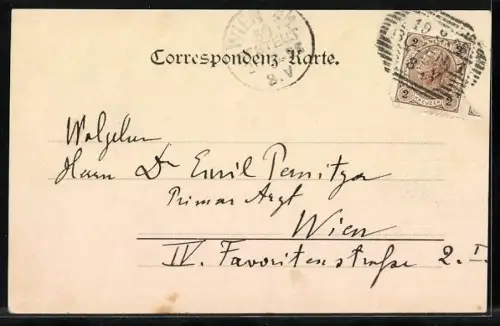 WIEN
Correspondenz-Karte.
2 2
Wolgeboren
Herrn Dr Emil Pernitza
Primar Arzt
Wien
IV. Favoritenstraße 2. I.